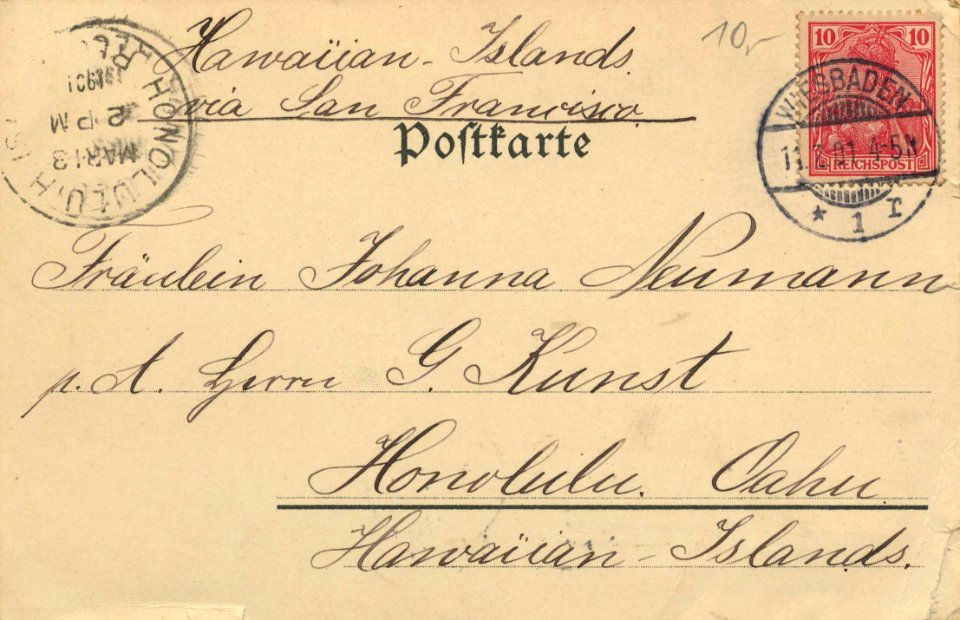 Hawaiian-Islands.
via San Francisco.
10,-
Postkarte
10 10
REICHSPOST
WIESBADEN
4-5N
* 1 r
HONOLULU H.
MAR 13
2 PM
1901
REC'
Fräulein Johanna Neumann
p. A. Herrn G. Kunst
Honolulu. Oahu
Hawaiian-Islands.